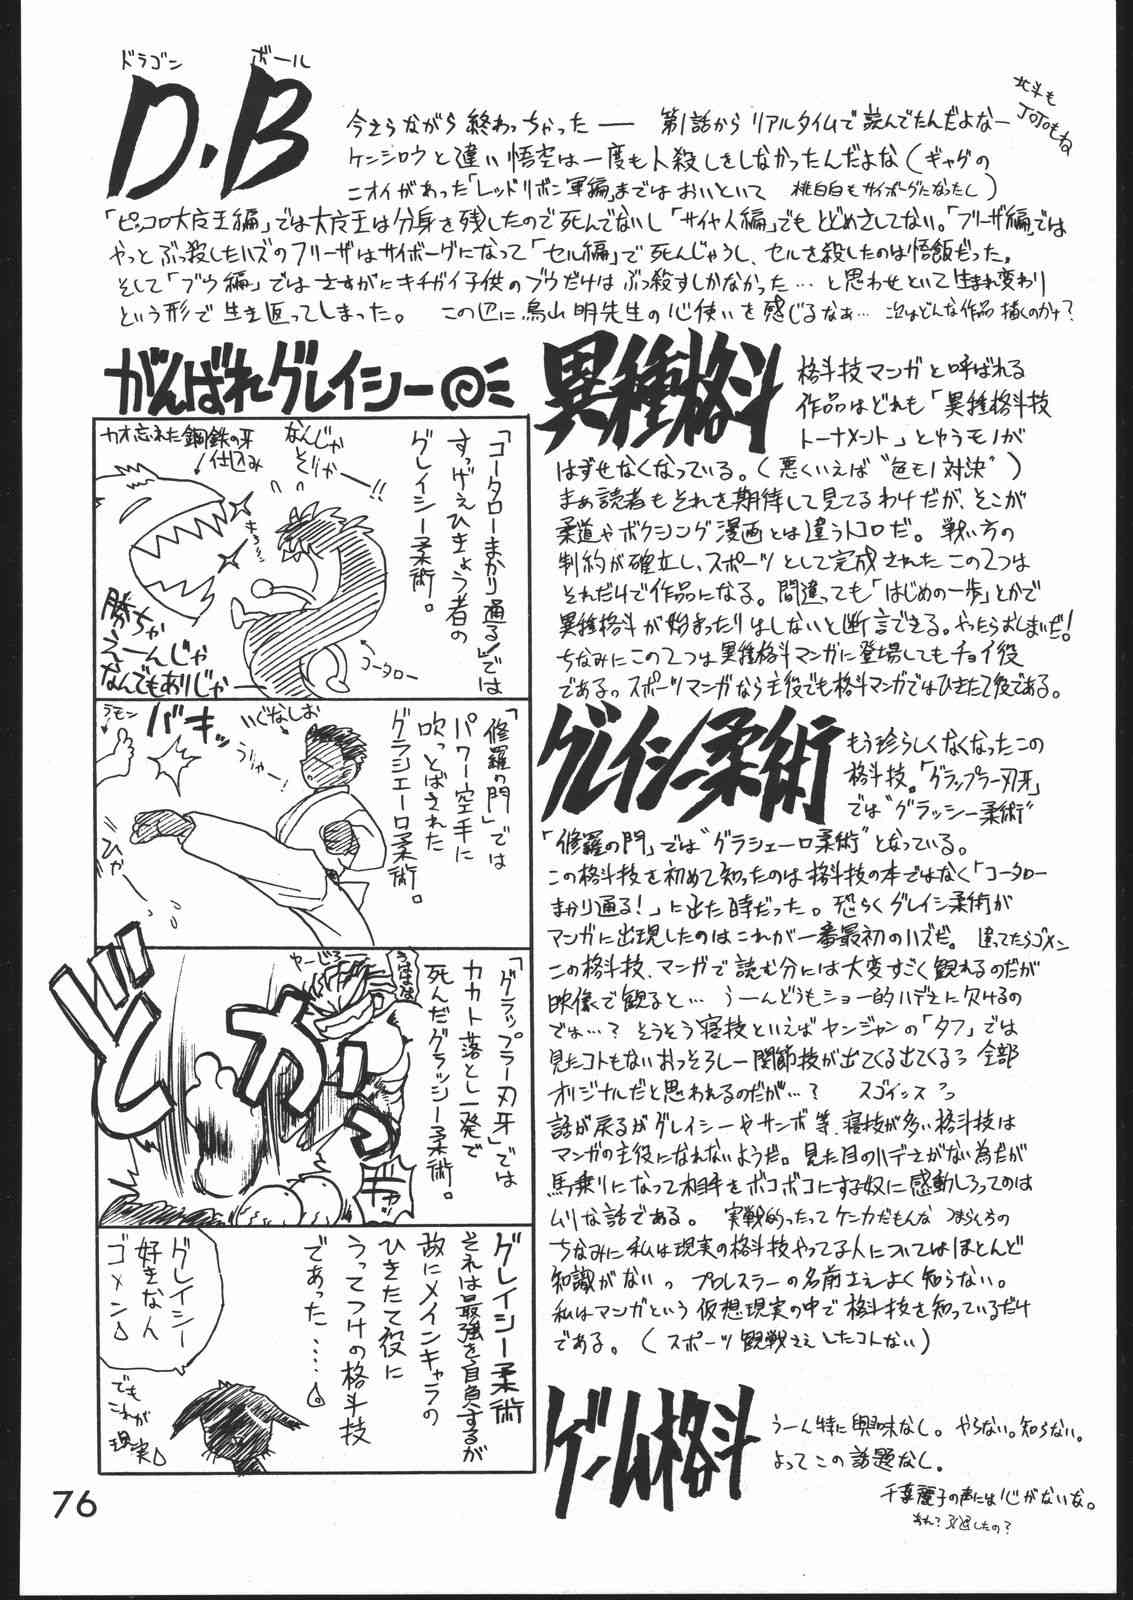 ドラゴン ボール
D.B
北斗も
JOJOもね
今さらながら終わっちゃったー 第1話からリアルタイムで読んでたんだよなー
ケンシロウと違い悟空は一度も人殺しをしなかったんだよな(ギャグの
ニオイがあった「レッドリボン軍編」まではおいといて 桃白白もサイボーグになったし)
「ピッコロ大魔王編」では大魔王は分身を残したので死んでないし「サイヤ人編」でもとどめさしてない。「フリーザ編」では
やっとぶっ殺したハズのフリーザはサイボーグになって「セル編」で死んじゃうし、セルを殺したのは悟飯だった。
そして「ブウ編」ではさすがにキチガイ子供のブウだけはぶっ殺すしかなかった…と思わせといて生まれ変わり
という形で生き返ってしまった。 この辺に鳥山明先生の心使いを感じるなぁ… 次はどんな作品描くのかナ?
がんばれグレイシー
「コータローまかり通る!」では
すっげえひきょう者の
グレイシー柔術。
カオ忘れた鋼鉄の牙
仕込み
なんじゃ
そりゃー!!
勝ちゃ
えーんじゃ
なんでもありじゃー
コータロー
「修羅の門」では
パワー空手に
吹っとばされた
グラシエーロ柔術。
ラモン
バキッ
いぐなしお
うりゃー!
ひゃ
「グラップラー刃牙」では
カカト落とし一発で
死んだグラッシー柔術。
やーじろー
どかっ
ギャッ
グレイシー柔術
それは最強を自負するが
故にメインキャラの
ひきたて役に
うってつけの格斗技
であった……
グレイシー
好きな人
ゴメン
でも
これが
現実
異種格斗
格斗技マンガと呼ばれる
作品はどれも「異種格斗技
トーナメント」とゆうモノが
はずせなくなっている。(悪くいえば"色モノ対決")
まぁ読者もそれを期待して見てるわけだが、そこが
柔道やボクシング漫画とは違うトコロだ。 戦い方の
制約が確立し、スポーツとして完成されたこの2つは
それだけで作品になる。間違っても「はじめの一歩」とかで
異種格斗が始まったりはしないと断言できる。やったらおしまいだ!
ちなみにこの2つは異種格斗マンガに登場してもチョイ役
である。スポーツマンガなら主役でも格斗マンガではひきたて役である。
グレイシー柔術
もう珍らしくなくなったこの
格斗技。「グラップラー刃牙」
では"グラッシー柔術"
「修羅の門」では"グラシエーロ柔術"となっている。
この格斗技を初めて知ったのは格斗技の本ではなく「コータロー
まかり通る!」に出た時だった。恐らくグレイシー柔術が
マンガに出現したのはこれが一番最初のハズだ。 違ってたらゴメン
この格斗技、マンガで読む分には大変すごく観れるのだが
映像で観ると… うーんどうもショー的ハデさに欠けるの
では…? そうそう寝技といえばヤンジャンの「タフ」では
見たコトもないおっそろしー関節技が出てくる出てくるっ 全部
オリジナルだと思われるのだが…? スゴイッスっ
話が戻るがグレイシーやサンボ等、寝技が多い格斗技は
マンガの主役になれないようだ。見た目のハデさがない為だが
馬乗りになって相手をボコボコにする奴に感動しろってのは
ムリな話である。 実戦的ったってケンカだもんな つまらんちの
ちなみに私は現実の格斗技やってる人についてはほとんど
知識がないっ プロレスラーの名前さえよく知らない。
私はマンガという仮想現実の中で格斗技を知っているだけ
である。(スポーツ観戦さえしたコトない)
ゲーム格斗
うーん特に興味なし。やらない。知らない。
よってこの話題なし。
千葉麗子の声には心がないな。
76